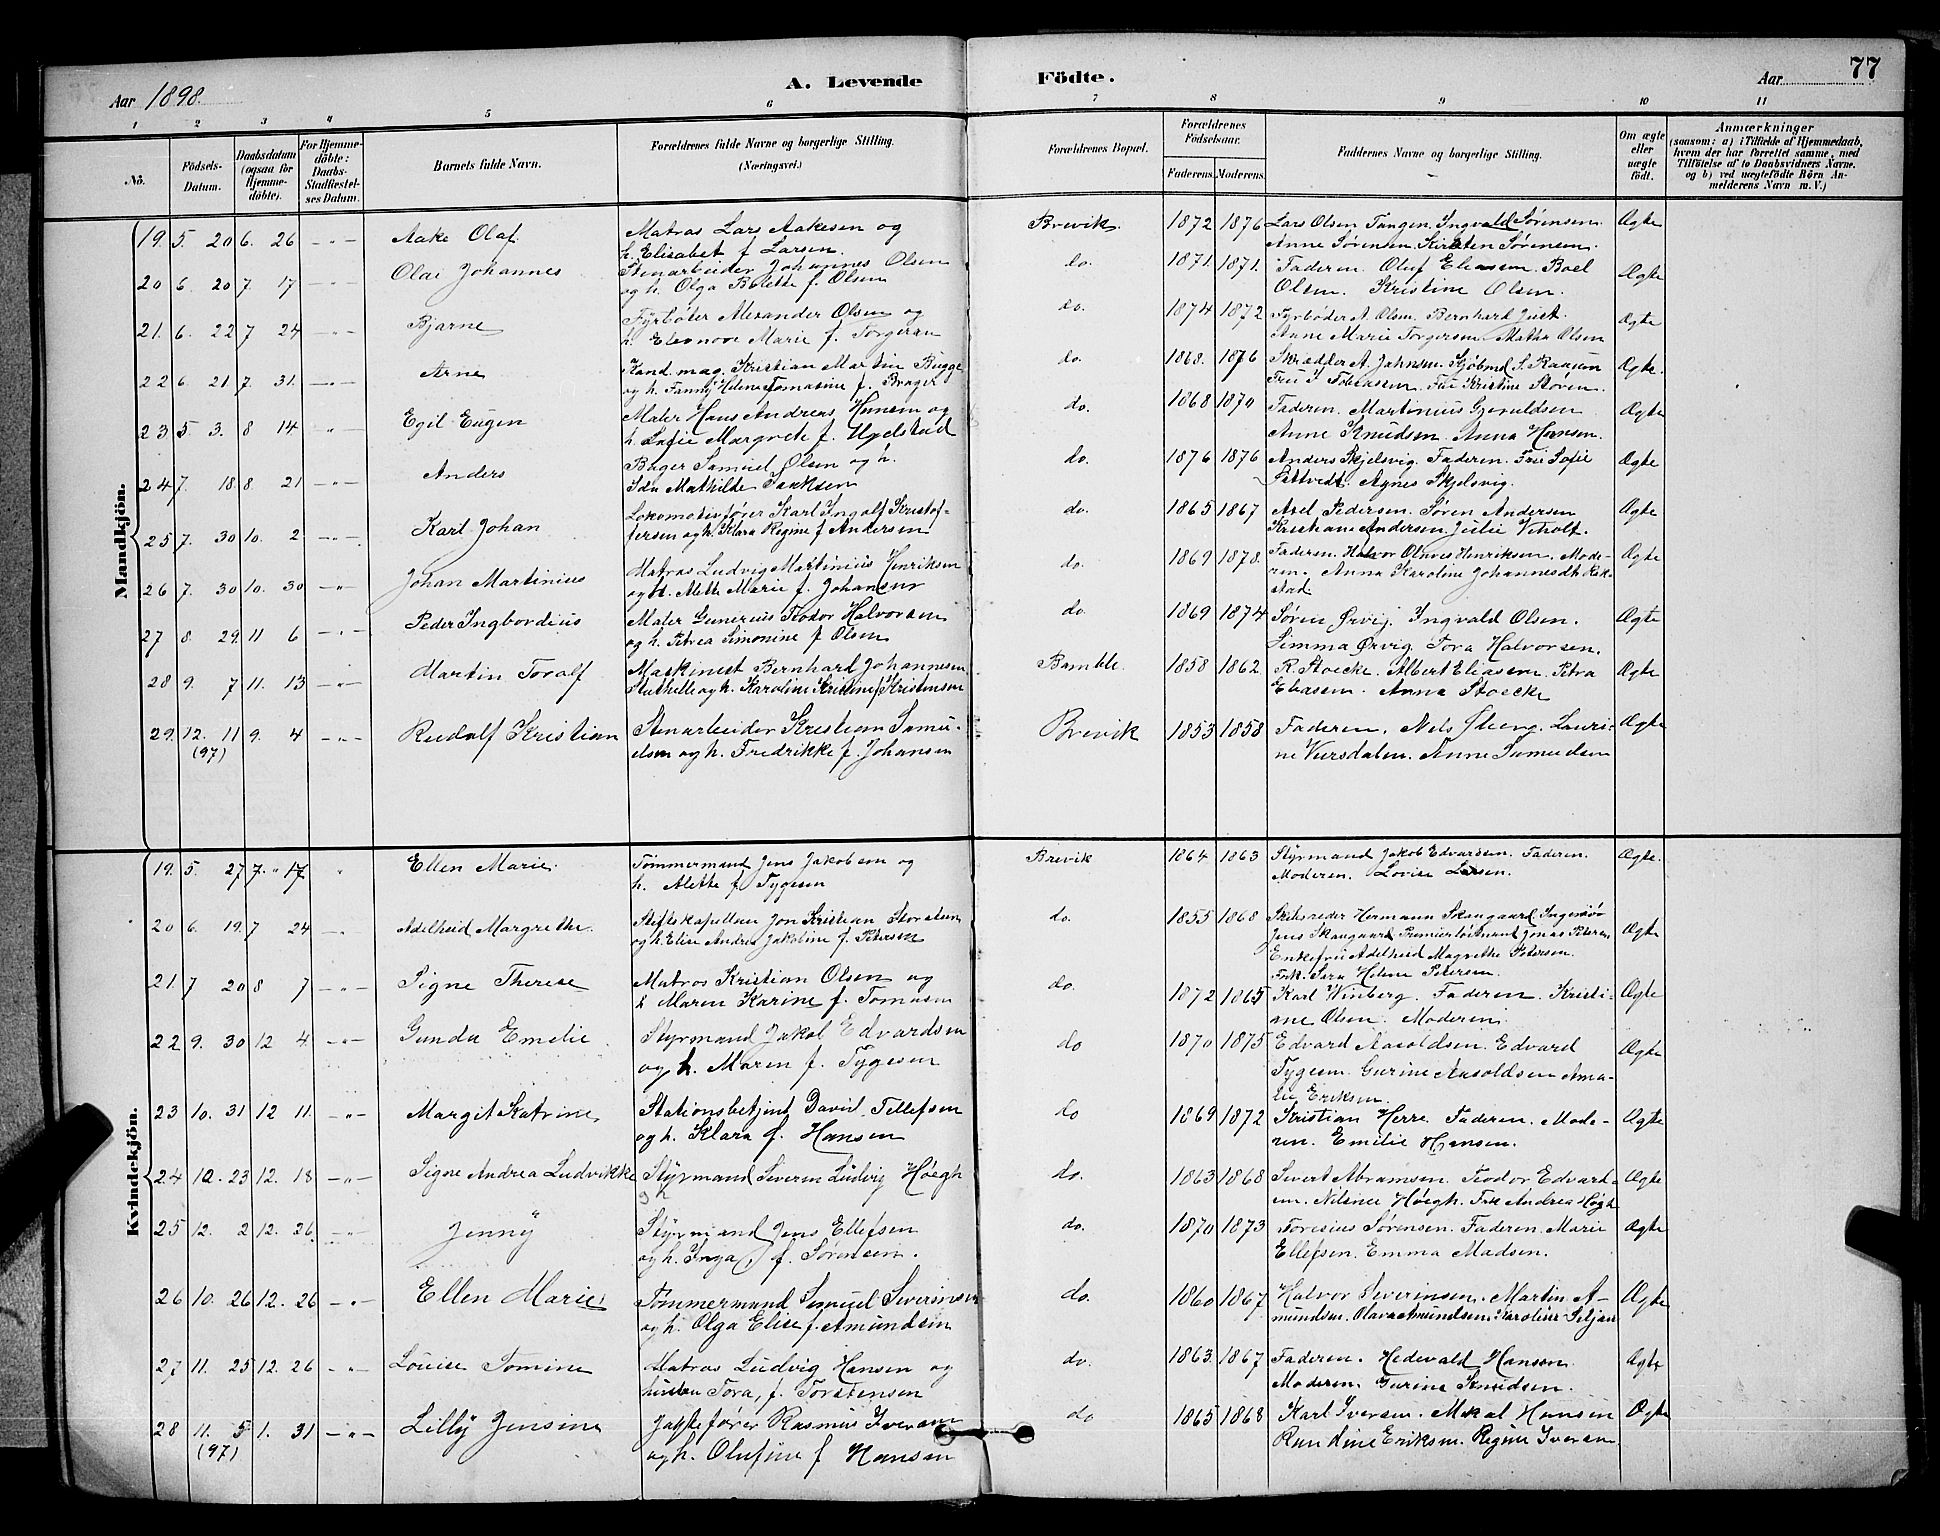 Aar 1898. A. Levende Födte. Aar 77
1 2 3 4 5 6 7 8 9 10 11
No. Födsels-Datum. Daabsdatum (ogsaa for Hjemmedöbte). For Hjemmedöbte: Daabs-Stadfæstelses Datum. Barnets fulde Navn. Forældrenes fulde Navne og borgerlige Stilling. (Næringsvei.) Forældrenes Bopæl. Forældrenes Födselsaar. Faderens. Moderens. Faddernes Navne og borgerlige Stilling. Om ægte eller uægte födt. Anmærkninger (saasom: a) i Tilfælde af Hjemmedaab, hvem der har forrettet samme, med Tilföielse af to Daabsvidners Navne. og b) ved uægtefödte Börn Anmelderens Navn m. V.)
Mandkjön.
19. 5. 20 6. 26 Aake Olaf Matros Lars Aakesen og Brevik. 1872 1876 Lars Olsen Tangen. Ingvald Sørensen. Ægte
h. Elisabet f. Larsen Anne Sørensen. Kirsten Sørensen.
20 6. 20 7 17 Olai Johannes Stenarbeider Johannes Olsen do. 1871. 1871. Faderen. Oluf Eliassen. Boel Ægte
og h. Olga Bolette f. Olsen Olsen. Kristine Olsen.
21. 6. 22 7 24 Bjarne Fyrbøter Alexander Olsen og do. 1874 1872 Fyrbøder A. Olsen. Bernhard Just. Ægte
h. Elenove Marie f. Torgersen Anne Marie Torgersen. Mathea Olsen
22 6. 21 7. 31. Arne Kand. mag. Kristian Martin Bugge do. 1868. 1876 Skrædder A. Johnsen. Kjøbmd S. Raaum Ægte.
og h. Fanny Helene Tomasine f. Brager Fru S. Tobiassen. Fru Kristine Støren.
23 5. 3. 8 14 Egil Eugen Maler Hans Andreas Hansen og do. 1868 1870 Faderen. Martinius Gjeruldsen Ægte
h. Sofie Margrete f. Ugelstad Anne Knudsen. Anna Hansen.
24 7. 18 8 21 Anders Bager Samuel Olsen og h. do. 1876 1876 Anders Skjelsvig. Faderen. Fru Sofie Ægte
Ida Mathilde Isaksen Sattvedt. Agnes Skjelsvig.
25 7. 30 10. 2 Karl Johan Lokomotivfører Karl Ingolf Kristof- do. 1865 1867 Axel Pedersen. Søren Andersen Ægte
fersen og h. Klara Regine f. Andersen Kristiane Andersen. Julie Vetholt.
26 7. 30 10. 30 Johan Martinius Matros Ludvig Martinius Henriksen do. 1869 1878. Faderen. Halvor Olaves Henriksen. Mode- Ægte
og h. Mette Marie f. Johansen ren. Anna Karoline Johannesdt. Rak-
stad.
27 8. 29. 11 6 Peder Ingbordius Maler Gunerius Teodor Halvorsen do. 1869 1874 Søren Ørvig. Ingvald Olsen. Ægte
og h. Petrea Simonine f. Olsen Simma Ørvig. Tora Halvorsen.
28 9. 7 11. 13 Martin Toralf Maskinist Bernhard Johannesen Bamble. 1858 1862 R. Stoecke. Albert Eliassen. Petra Ægte
Stathelle og h. Karoline Kristine f. Kristensen Eliassen. Anna Stoecke
29. 12. 11 9. 4 Rudolf Kristian Stenarbeider Kristian Samu- Brevik 1853 1858 Faderen. Nils Steeng. Lauri- Ægte
(97) elsen og h. Fredrikke f. Johansen ne Versdalen. Anne Samuelsen
Kvindekjön.
19. 5. 27 7. 17 Ellen Marie. Tømmermand Jens Jakobsen og Brevik 1864 1863 Styrmand Jakob Edvardsen. Faderen. Ægte.
h. Alette f. Tygesen Moderen. Lovise Larsen.
20 6. 19. 7 24 Adelheid Margrethe. Stiftskapellan Jon Kristian Storaker do. 1855 1868 Skibsreder Hermann Skaugaard. Ingeniør Ægte
og h. Elise Andrea Jakobine f. Petersen Jens Skaugaard. Premierløitnant Jonas Petersen
Enkefru Adelheid Magrethe Petersen.
Frk. Sara Helene Petersen.
21. 7 20 8 7 Signe Therese Matros Kristian Olsen og do. 1872 1865 Karl Winberg. Faderen. Kristi- Ægte
h Maren Karine f. Tomasen ane Olsen. Moderen.
22 9. 30 12 4. Gunda Emelie Styrmand Jakob Edvardsen do 1870 1875 Edvard Aasoldsen. Edvard Ægte
og h. Maren f. Tygesen Tygesen. Gurine Aasoldsen. Ama-
lie Eriksen.
23 10. 31 12 11. Margit Katrine Stationsbetjent David Tellefsen do 1869 1872 Kristian Herre. Faderen. Mode- Ægte
og h. Klara f. Hansen ren. Emilie Hansen.
24 10. 23 12. 18 Signe Andrea Ludvikke Styrmand Severin Ludvig Høegh do. 1863 1868 Sivert Abramsen. Teodor Edvard- Ægte
sen. Nilsine Høegh. Frk Andrea Høgh
25 12. 2 12. 26. Jenny Styrmand Jens Ellefsen do. 1870 1873 Toresius Sørensen. Faderen. Marie Ægte
og h. Inga f. Sørensen. Ellefsen. Emma Madsen.
26 10. 26 12. 26 Ellen Marie Tømmermand Samuel Severinsen do. 1860 1867 Halvor Severinsen. Martin A- Ægte
og h. Olga Elise f. Amundsen mundsen. Olava Amundsen. Karoline Siljan
27 11. 25 12. 26 Louise Tomine Matros Ludvig Hansen og do. 1863. 1867 Faderen. Hedevald Hansen. Ægte
hustru Tora, f. Torstensen Moderen. Gurine Knudsen.
28 11. 5 1. 31 Lilly Jensine Jagtefører Rasmus Iversen do 1865 1868 Karl Iversen. Mikal Hansen Ægte
(97) og h. Olufine f Hansen Randine Eriksen. Regine Iversen